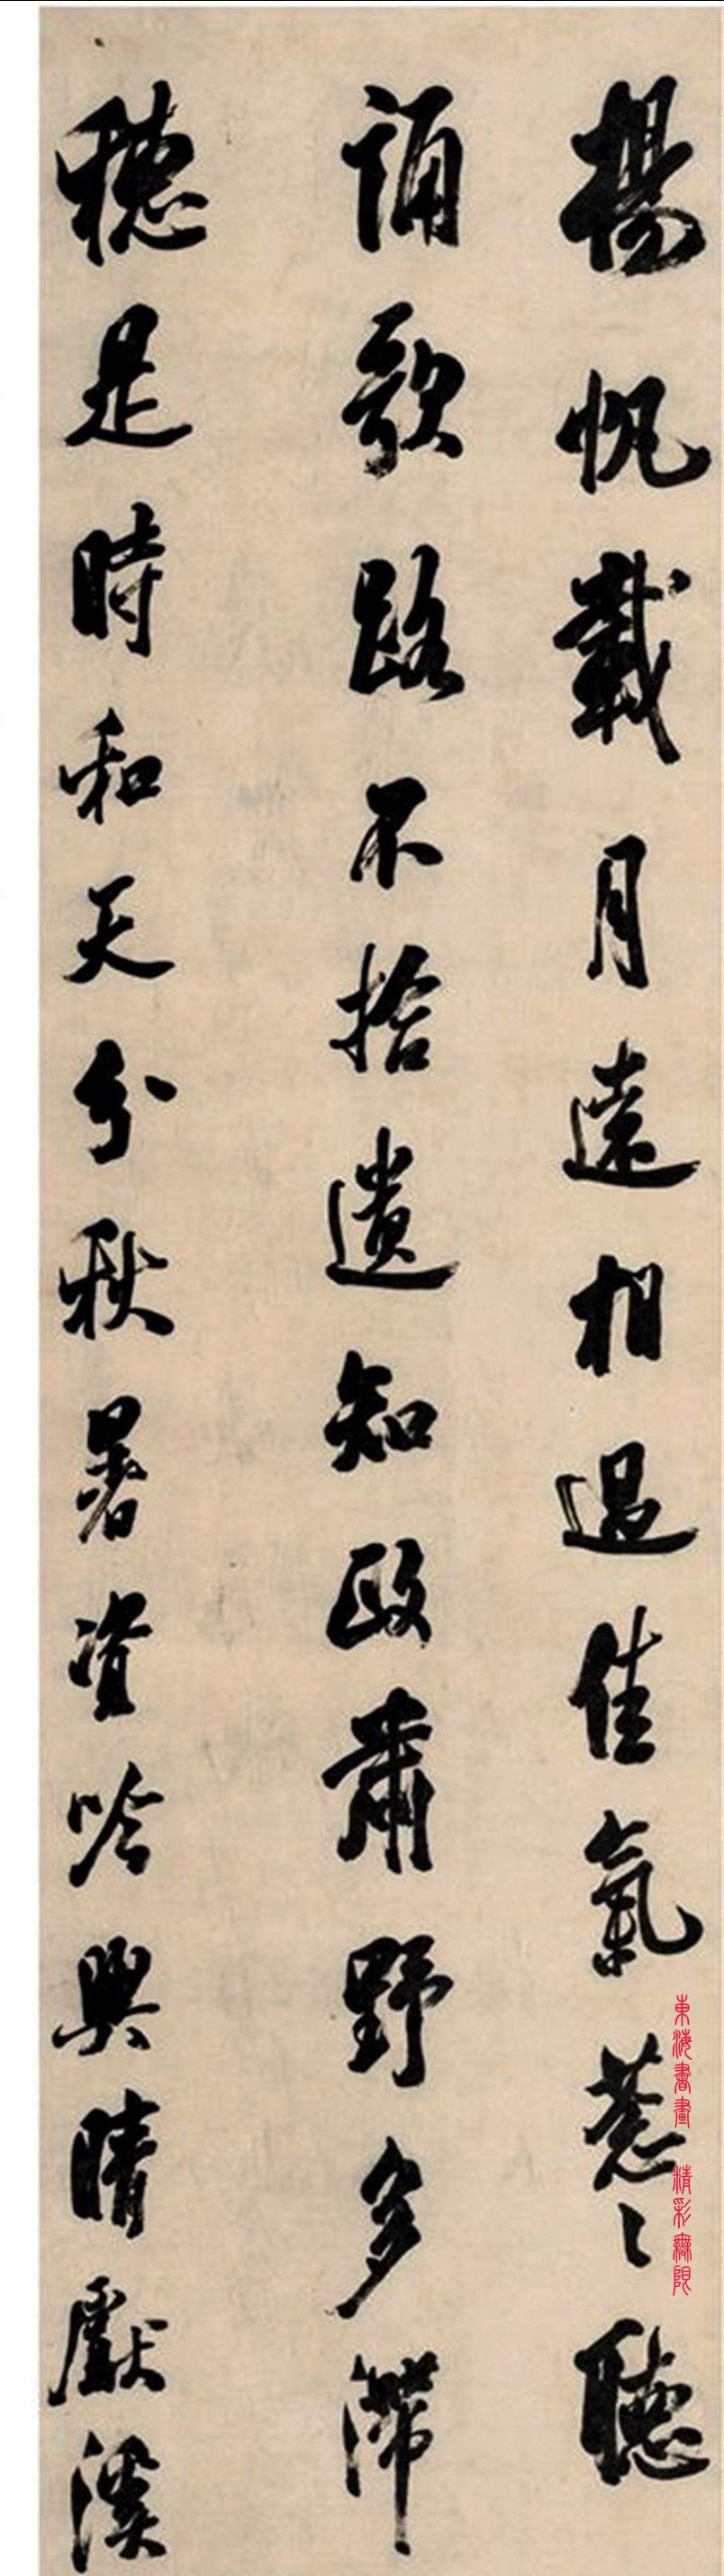 揚帆載月遠相過佳氣葱〻聽
誦歌路不拾遺知政肅野多滯
穗是時和天分秋暑資吟興晴獻溪
東海書畫 精彩無限